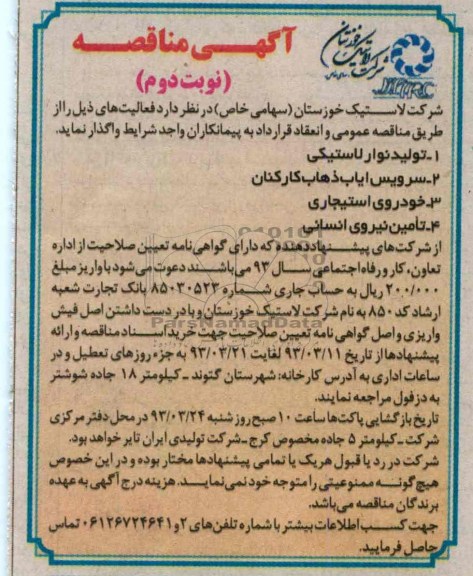 آگهی مناقصه
(نوبت دوم)
شرکت لاستیک خوزستان
شرکت لاستیک خوزستان (سهامی خاص) در نظر دارد فعالیت‌های ذیل را از
طریق مناقصه عمومی و انعقاد قرارداد به پیمانکاران واجد شرایط واگذار نماید.
۱ـ تولید نوار لاستیکی
۲ـ سرویس ایاب ذهاب کارکنان
۳ـ خودروی استیجاری
۴ـ تأمین نیروی انسانی
از شرکت‌های پیشنهاد دهنده که دارای گواهی نامه تعیین صلاحیت از اداره
تعاون، کار و رفاه اجتماعی سال ۹۳ می‌باشند دعوت می‌شود با واریز مبلغ
۲۰۰/۰۰۰ ریال به حساب جاری شماره ۸۵۰۳۰۵۲۳ بانک تجارت شعبه
ارشاد کد ۸۵۰ به نام شرکت لاستیک خوزستان و با در دست داشتن اصل فیش
واریزی و اصل گواهی نامه تعیین صلاحیت جهت خرید اسناد مناقصه و ارائه
پیشنهادها از تاریخ ۹۳/۰۳/۱۱ لغایت ۹۳/۰۳/۲۱ به جزء روزهای تعطیل و در
ساعات اداری به آدرس کارخانه: شهرستان گتوند ـ کیلومتر ۱۸ جاده شوشتر
به دزفول مراجعه نمایند.
تاریخ بازگشایی پاکت‌ها ساعت ۱۰ صبح روز شنبه ۹۳/۰۳/۲۴ در محل دفتر مرکزی
شرکت ـ کیلومتر ۵ جاده مخصوص کرج ـ شرکت تولیدی ایران تایر خواهد بود.
شرکت در رد یا قبول هر یک یا تمامی پیشنهادها مختار بوده و در این خصوص
هیچ گونه ممنوعیتی را متوجه خود نمی‌نماید. هزینه درج آگهی به عهده
برندگان مناقصه می‌باشد.
جهت کسب اطلاعات بیشتر با شماره تلفن‌های ۲ و ۰۶۱۲۶۷۲۴۶۴۱ تماس
حاصل فرمایید.
ParsNamadData